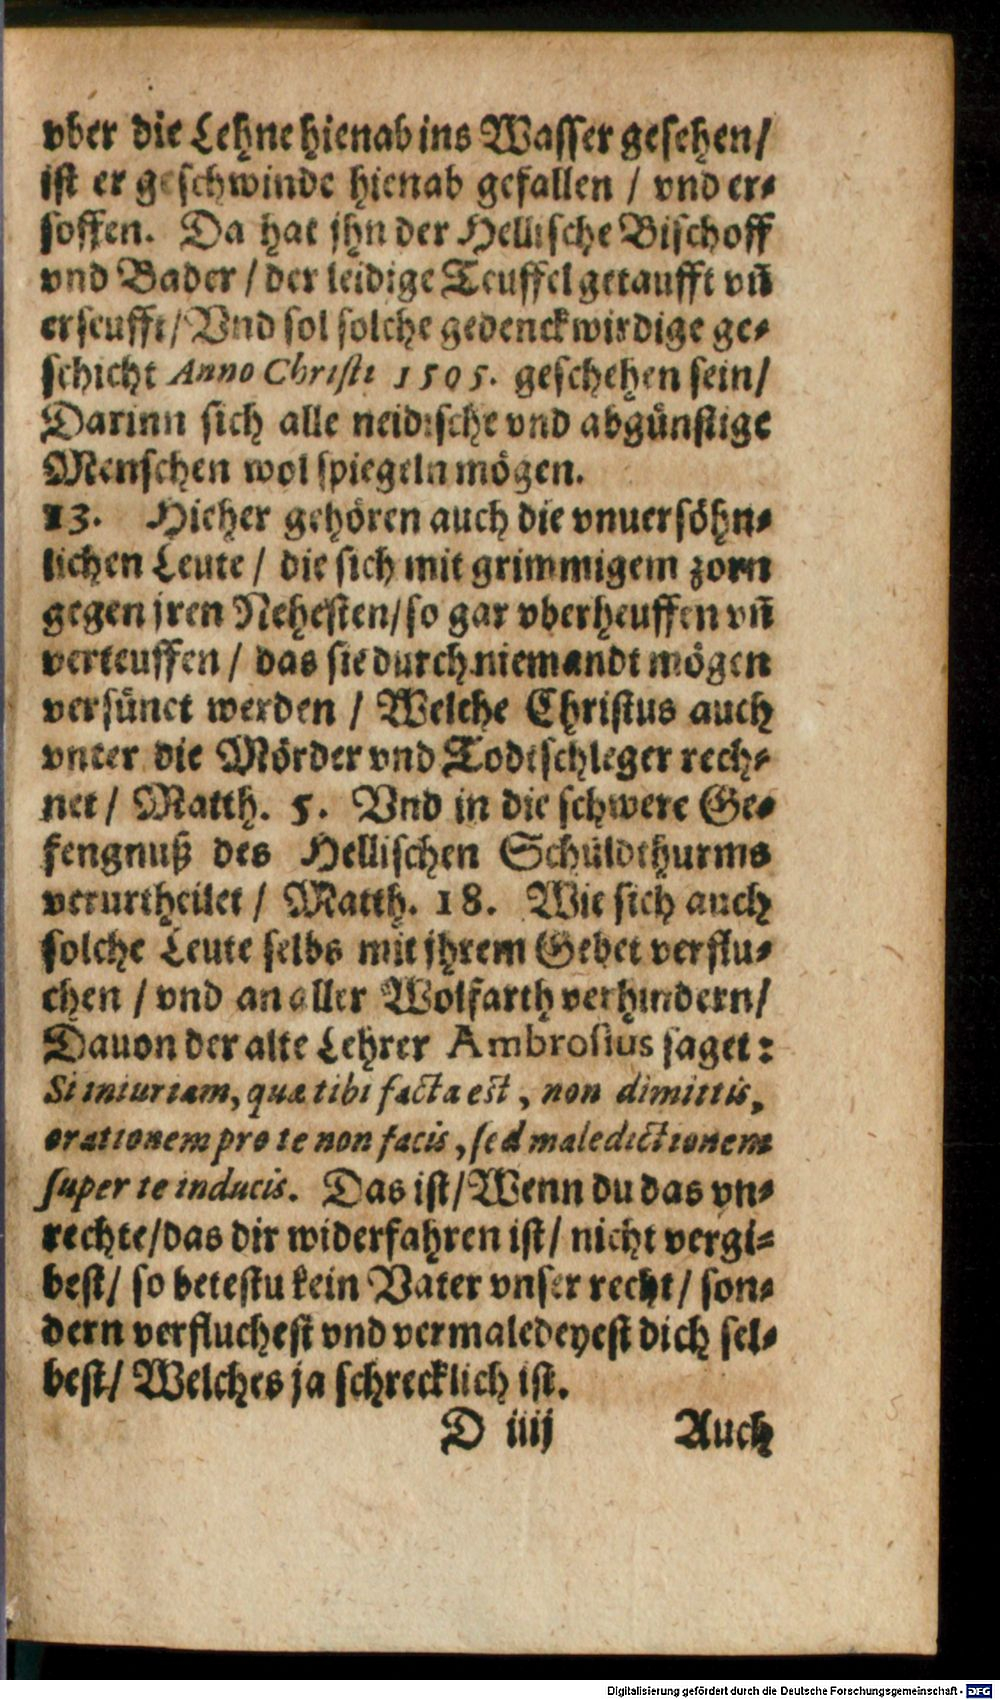 vber die Lehne hienab ins Wasser gesehen/
ist er geschwinde hienab gefallen / vnd er-
soffen. Da hat jhn der Hellische Bischoff
vnd Bader / der leidige Teuffel getaufft vn̄
erseufft/ Vnd sol solche gedenckwirdige ge-
schicht Anno Christi 1505. geschehen sein/
Darinn sich alle neidische vnd abgünstige
Menschen wol spiegeln mögen.
13. Hieher gehören auch die vnuersöhn-
lichen Leute / die sich mit grimmigem zorn
gegen jren Nehesten/ so gar vberheuffen vn̄
verteuffen / das sie durch niemandt mögen
versünet werden / Welche Christus auch
vnter die Mörder vnd Todtschleger rech-
net / Matth. 5. Vnd in die schwere Ge-
fengnuß des Hellischen Schuldthurms
verurtheilet / Matth. 18. Wie sich auch
solche Leute selbs mit jhrem Gebet verflu-
chen / vnd an aller Wolfarth verhindern/
Dauon der alte Lehrer Ambrosius saget:
Si iniuriam, quæ tibi facta est, non dimittis,
orationem pro te non facis, sed maledictionem
super te inducis. Das ist/ Wenn du das vn-
rechte/ das dir widerfahren ist/ nicht vergi-
best/ so betestu kein Vater vnser recht/ son-
dern verfluchest vnd vermaledeyest dich sel-
best/ Welches ja schrecklich ist.
D iiij Auch
Digitalisierung gefördert durch die Deutsche Forschungsgemeinschaft - DFG